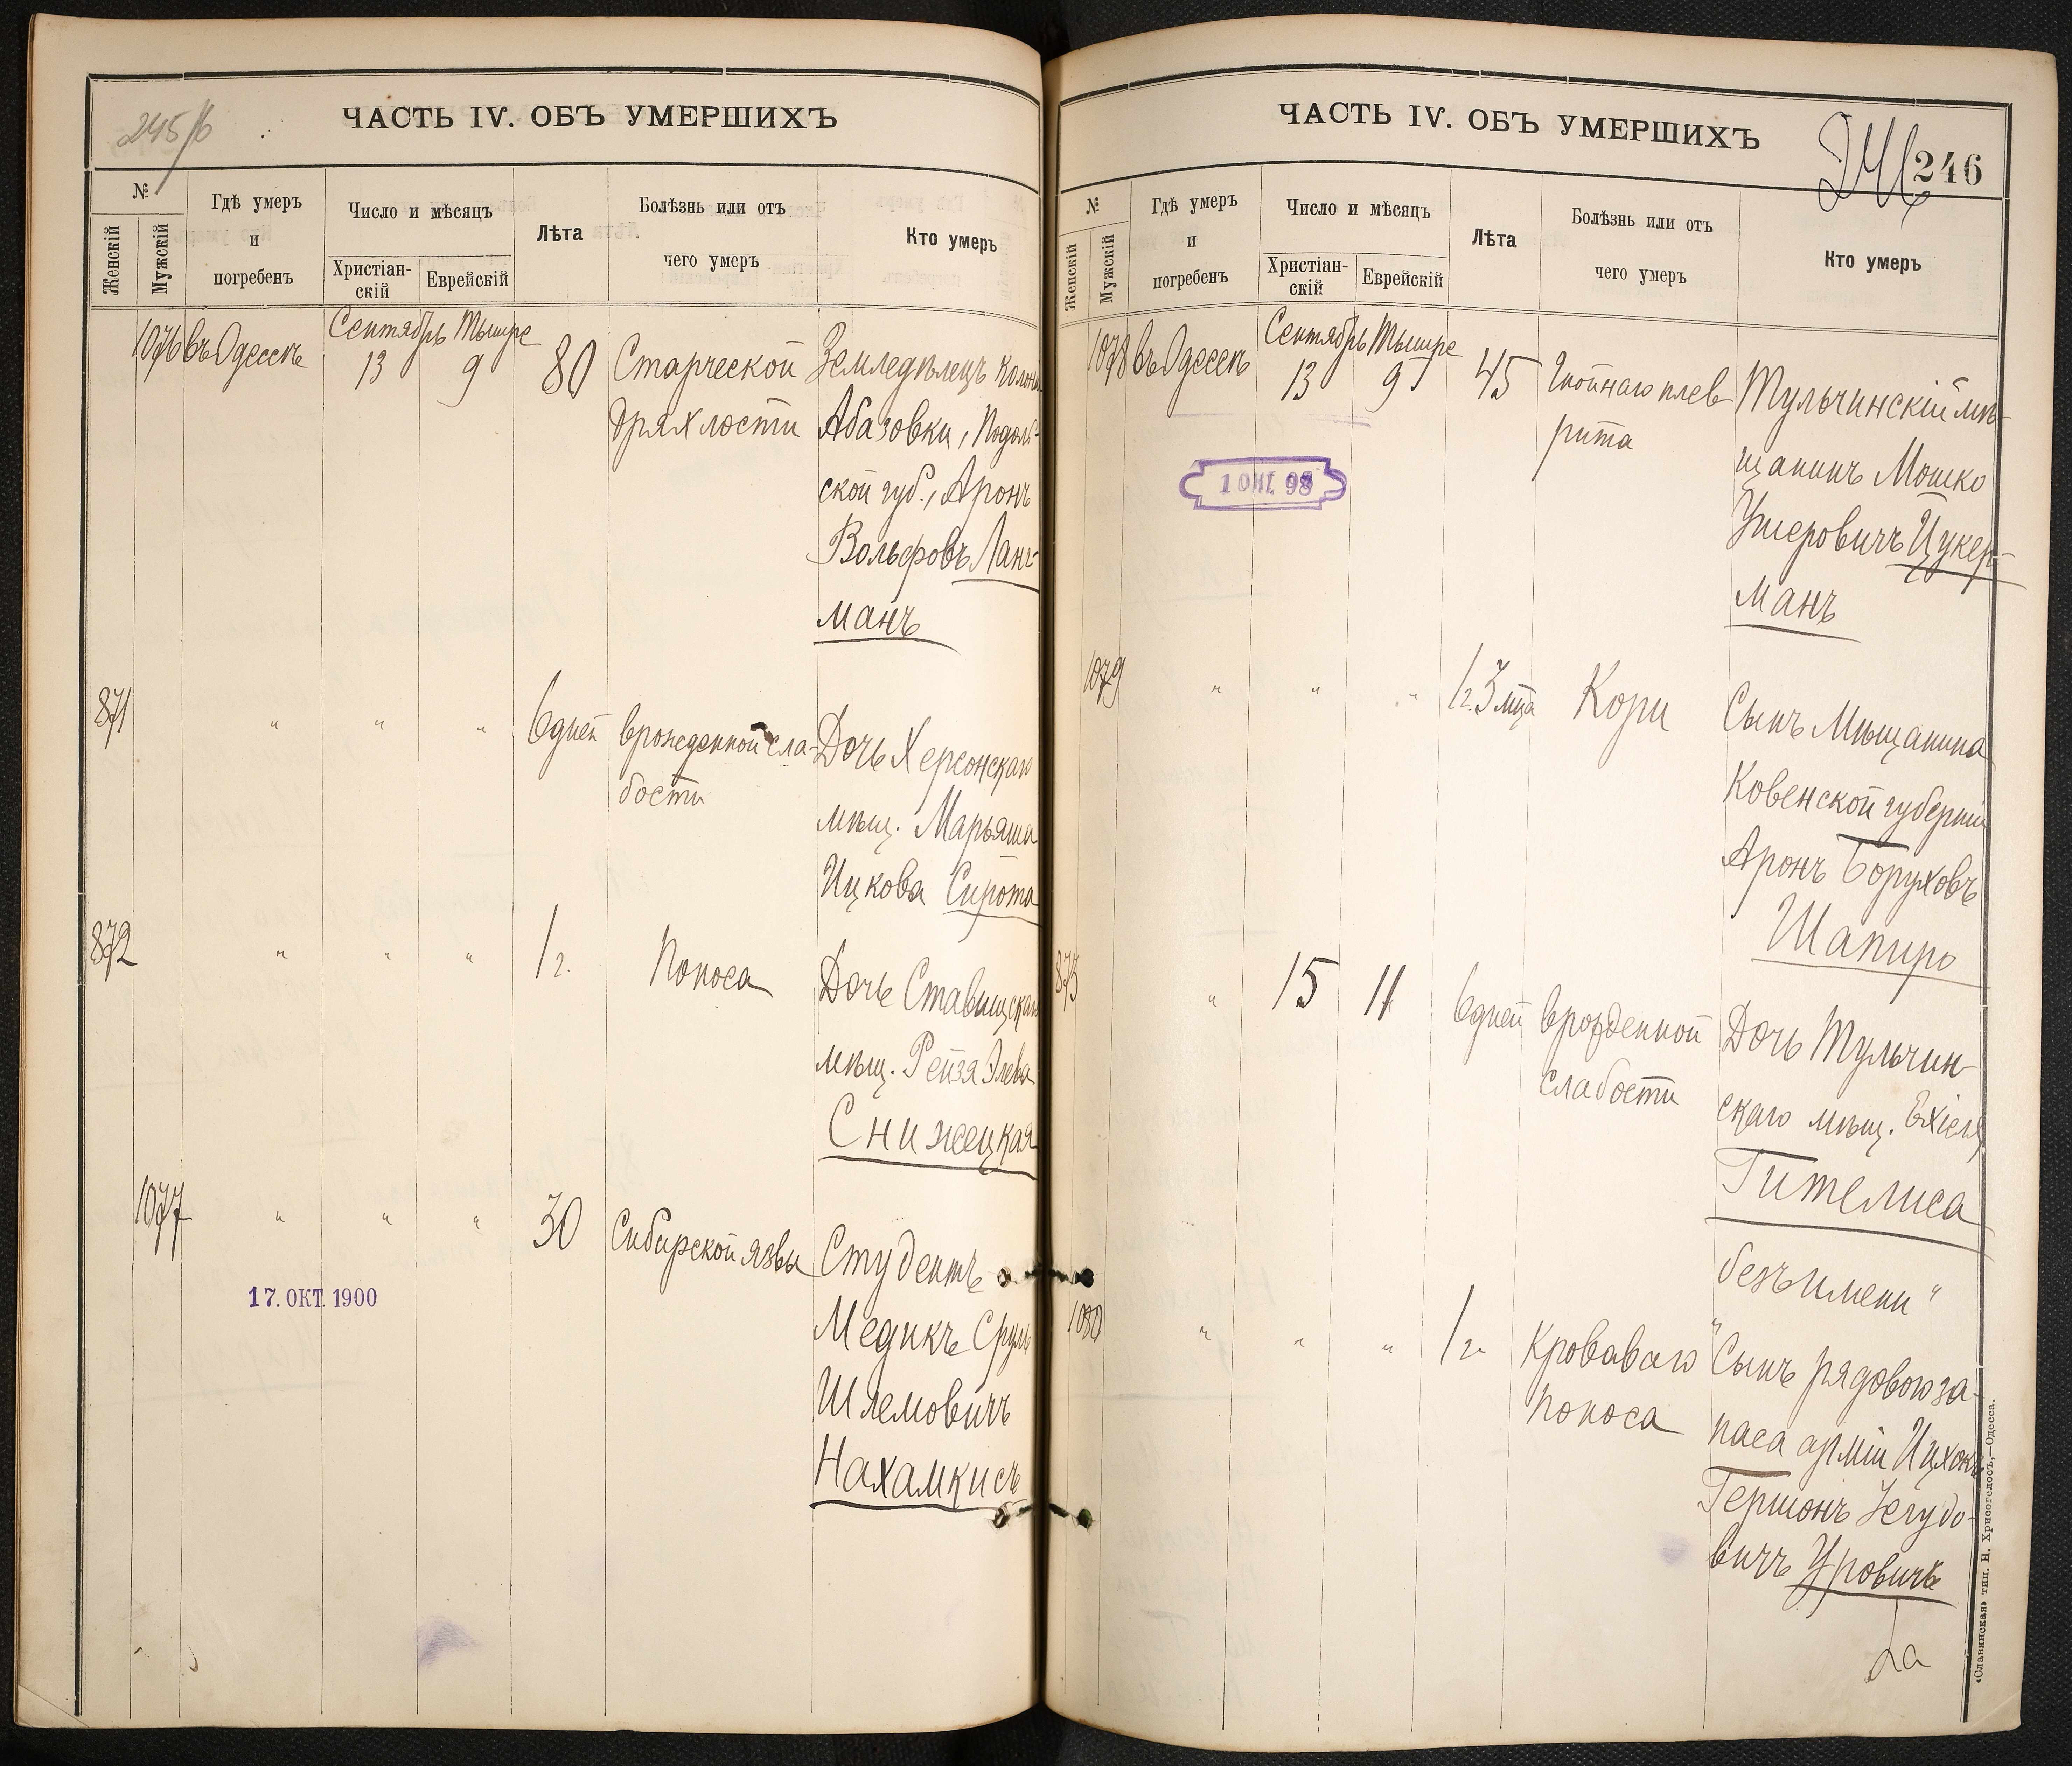 245/б
ЧАСТЬ IV. ОБЪ УМЕРШИХЪ
№
Женскій
Мужскій
Гдѣ умеръ
и
погребенъ
Число и мѣсяцъ
Христіан-
скій
Еврейскій
Лѣта
Болѣзнь или отъ
чего умеръ
Кто умеръ
1076 въ Одессѣ Сентябрь 13 Тышре 9 80 Старческой Земледѣлецъ колоніи
дряхлости Абазовки, Подоль-
ской губ., Аронъ
Вольфовъ Ланг-
манъ
871 " " " 6 дней врожденной сла- Дочь Херсонскаго
бости мѣщ. Марьяша
Ицкова Сирота
872 " " " 1 г. Поноса Дочь Ставищскаго
мѣщ. Рейзя Элева
Снижецкая
1077 " " " 30 Сибирской язвы Студентъ
17. ОКТ. 1900
Медикъ Сруль
Шлемовичъ
Нахамкисъ
ЧАСТЬ IV. ОБЪ УМЕРШИХЪ
246
246
№
Женскій
Мужскій
Гдѣ умеръ
и
погребенъ
Число и мѣсяцъ
Христіан-
скій
Еврейскій
Лѣта
Болѣзнь или отъ
чего умеръ
Кто умеръ
1078 въ Одессѣ Сентябрь 13 Тышре 9 45 Гнойнаго плев- Тульчинскій мѣ-
рита щанинъ Мошко
1 ОКТ. 98
Ушеровичъ Цукер-
манъ
1079 " " " 1 г. 3 мца Кори Сынъ Мѣщанина
Ковенской губерніи
Аронъ Боруховъ
Шапиро
873 " 15 11 6 дней врожденной Дочь Тульчин-
слабости скаго мѣщ. Ехіеля
Гителиса
безъ имени "
1080 " " " 1 г. Кроваваго "Сынъ рядового за-
поноса паса арміи Ицхокъ
Гершонъ Іегудо-
вичъ Уровичъ
«Славянская» тип. Н. Хрисогелосъ,—Одесса.